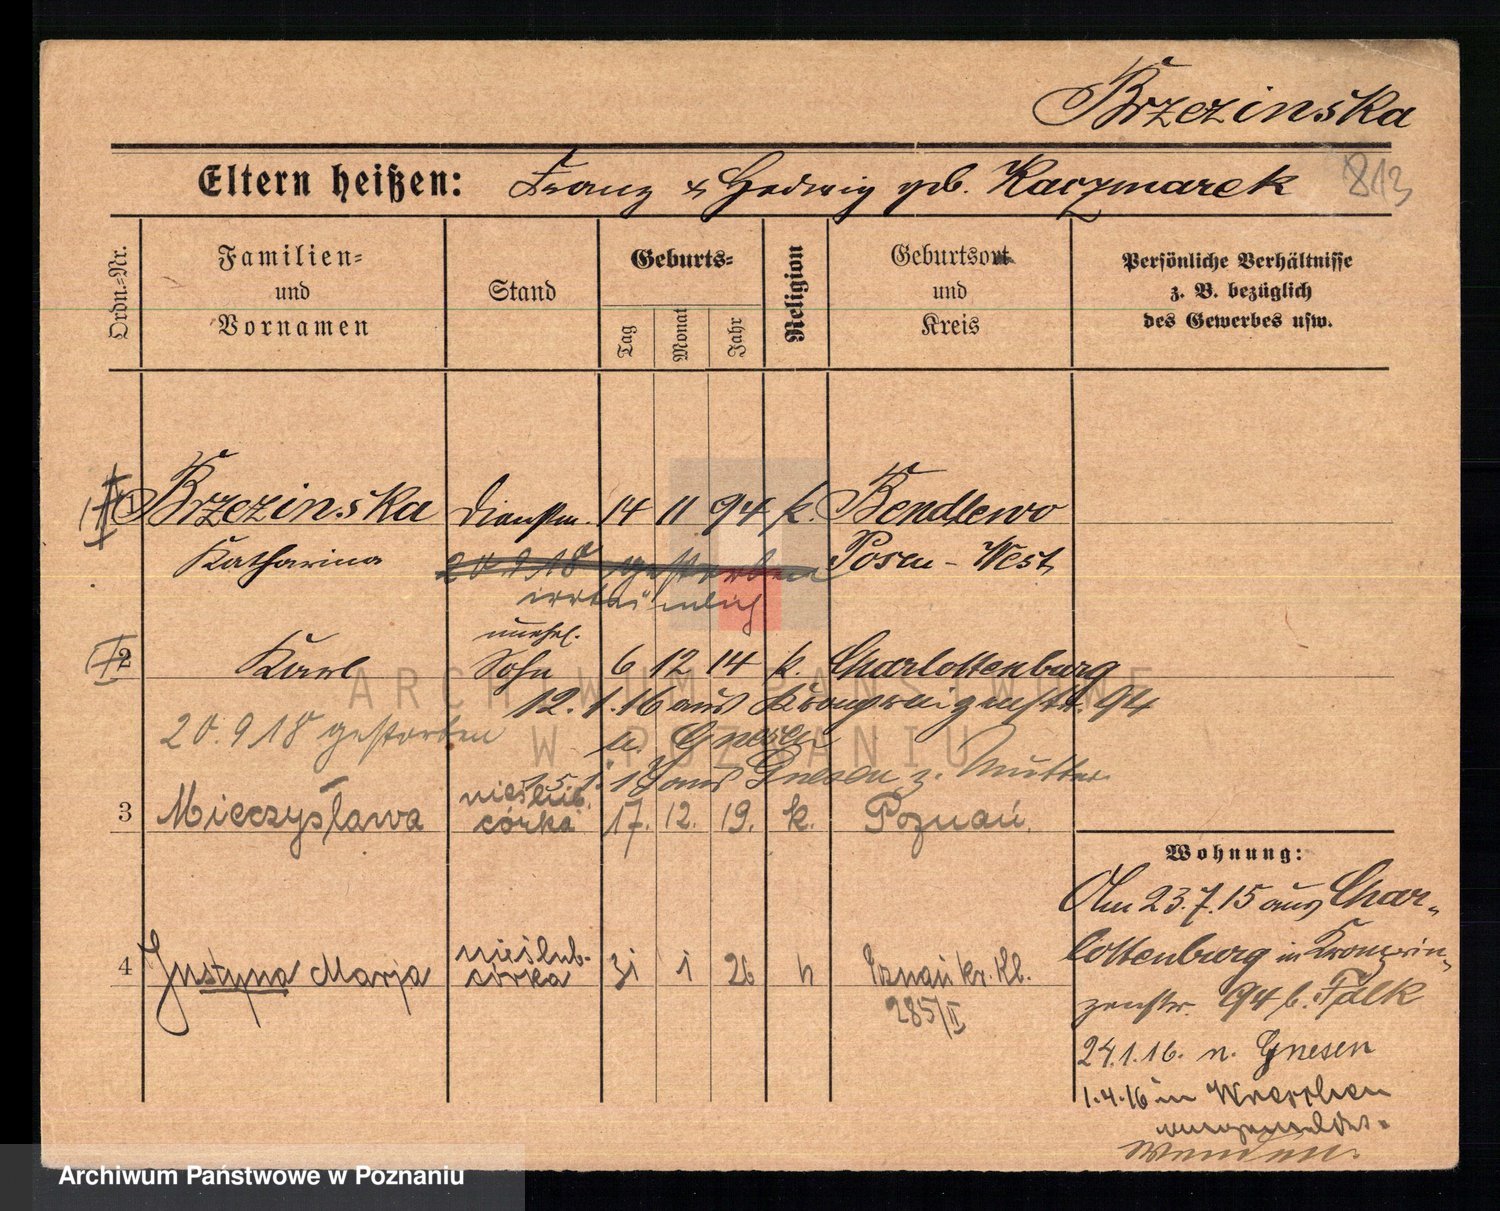 Brzezinska
813
Eltern heißen: Franz & Hedwig geb. Kaczmarek
Ordn.-Nr.
Familien- und Vornamen
Stand
Geburts-
Tag
Monat
Jahr
Religion
Geburtsort und Kreis
Persönliche Verhältnisse z. B. bezüglich des Gewerbes usw.
1 Brzezinska Dienstm. 14 11 94 k. Bendlewo
Katharina 20.9.18 gestorben Posen-West
irrtümlich
unehel.
2 Karl Sohn 6 12 14 k. Charlottenburg
12.1.16 aus Kronprinzenstr. 94
20.9.18 gestorben n. Gnesen
aus Gnesen z. Mutter
nieślub.
3 Mieczysława córka 17. 12. 19. k. Poznań.
Wohnung:
Am 23.7.15 aus Char-
lottenburg in Kronprin-
zenstr. 94 b. Falk
24.1.16. n. Gnesen
1.4.16 in Wreschen
nieślub.
4 Justyna Marja córka 31 1 26 kr. kl.
285/II
ARCHIWUM PAŃSTWOWE
W POZNANIU
Archiwum Państwowe w Poznaniu